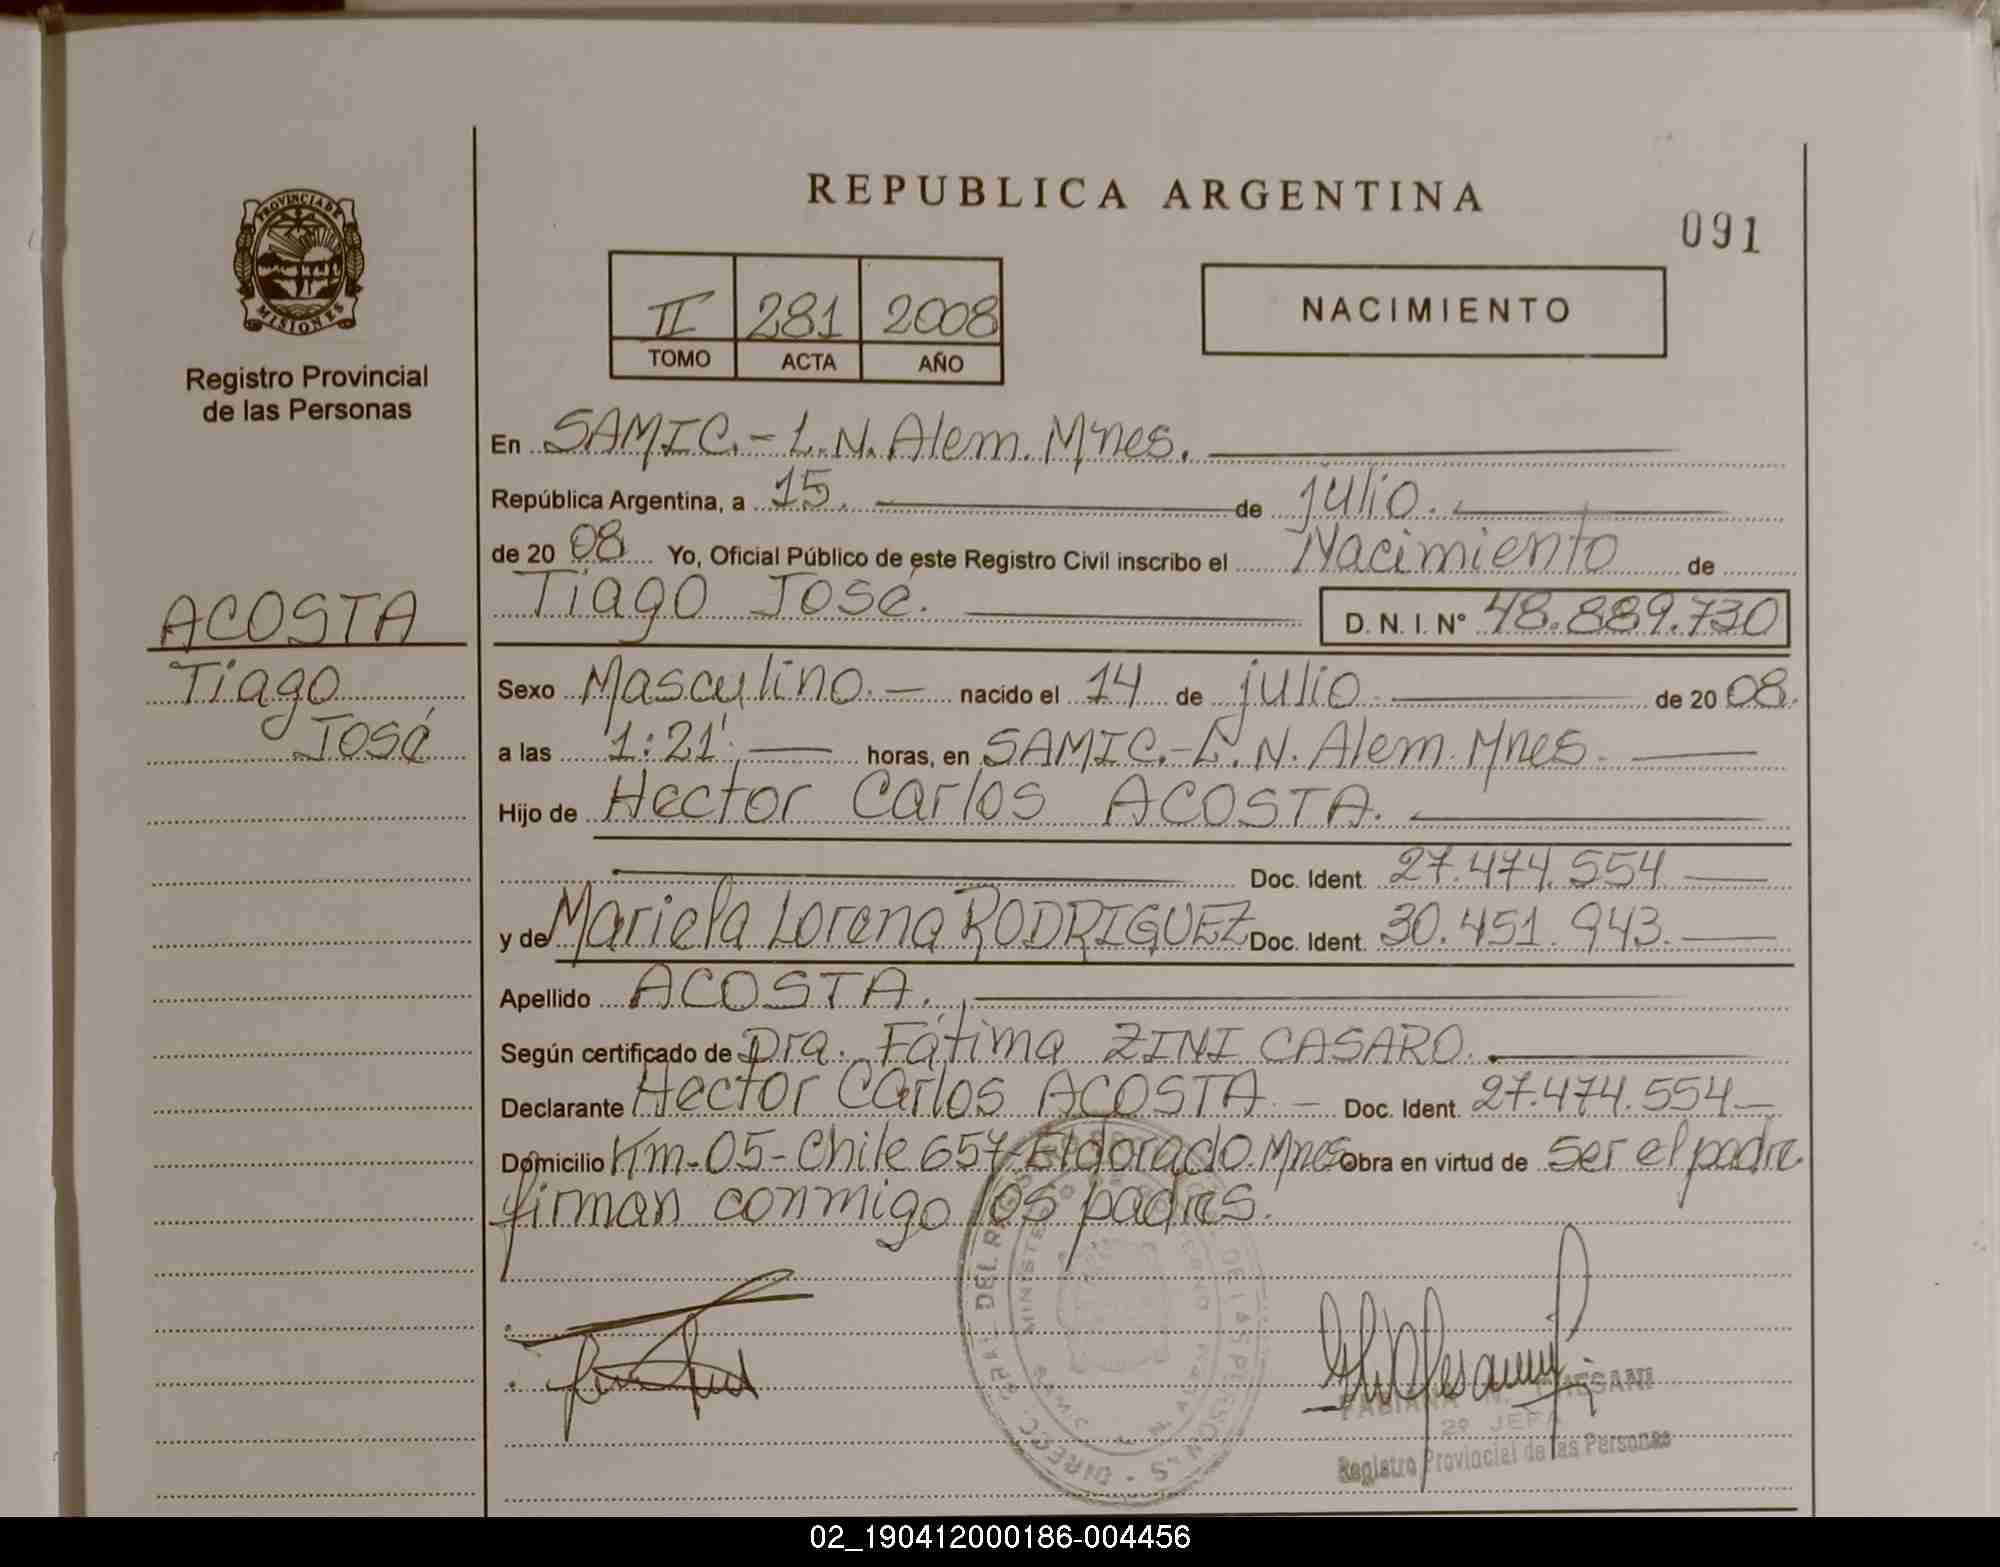 REPUBLICA ARGENTINA
091
PROVINCIA DE
MISIONES
Registro Provincial
de las Personas
II 281 2008
TOMO ACTA AÑO
NACIMIENTO
En SAMIC.- L.N. Alem. Mnes.
República Argentina, a 15. de julio.
de 20 08 Yo, Oficial Público de este Registro Civil inscribo el Nacimiento de
Tiago José. D. N. I. Nº 48.889.730
ACOSTA
Tiago
José
Sexo Masculino.- nacido el 14 de julio de 20 08.
a las 1:21' horas, en SAMIC.- L. N. Alem. Mnes.
Hijo de Hector Carlos ACOSTA.
Doc. Ident. 27.474.554
y de Mariela Lorena RODRIGUEZ Doc. Ident. 30.451.943.
Apellido ACOSTA.
Según certificado de Dra. Fátima ZINI CASARO.
Declarante Hector Carlos ACOSTA - Doc. Ident. 27.474.554
Domicilio Km-05-Chile 657-Eldorado.Mnes Obra en virtud de ser el padre.
firman conmigo los padres.
DIRECC. GRAL. DEL DE LAS PERSONAS
FABIANA N.
2º JEFA
Registro Provincial de las Personas
02_190412000186-004456